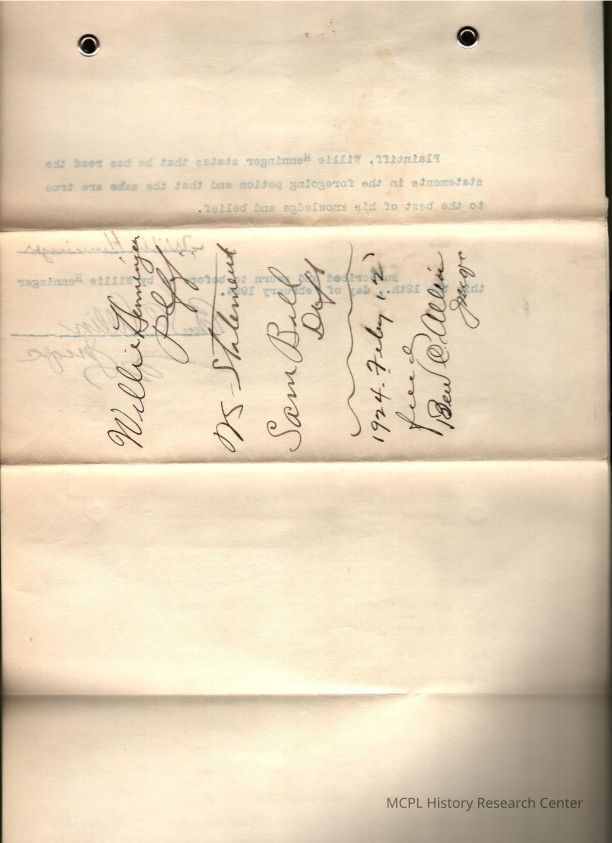 Plaintiff, Willie Henninger states that he has read the
statements in the foregoing petion and that the sake are true
to the best of his knowledge and belief.
Willie Henninger
Subscribed and sworn to before by Willie Henninger
this 12th., day of February
Judge
Willie Henninger
Plff
VS - Statement
Sam Bul
Deft
1924. Feby 12
filed
Ben C. Allin
Judge
MCPL History Research Center